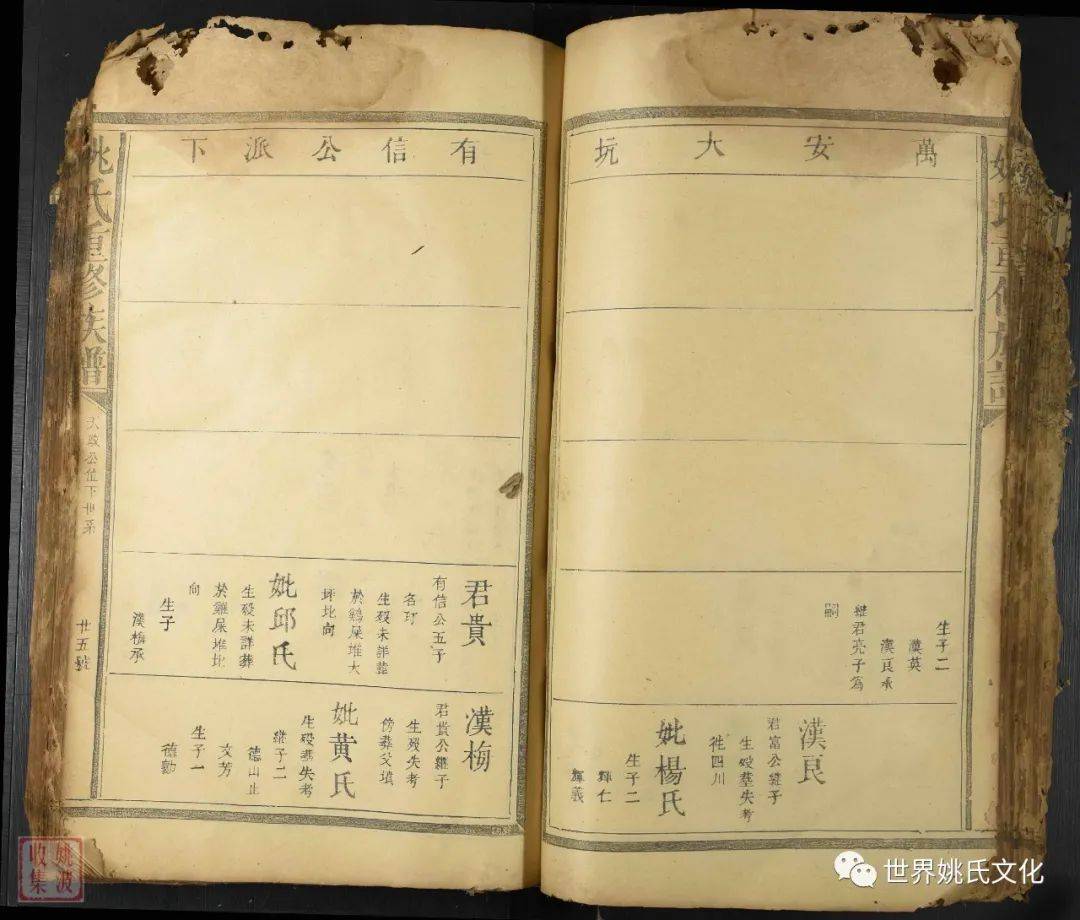 萬安大坑
生子二
漢英
漢良承
繼君亮子為
嗣
漢良
君富公繼子
生歿墓失考
徃四川
妣楊氏
生子二
輝仁
輝義
有信公派下
君貴
有信公五子
名玎
生歿未詳葬
於鷄屎堆大
坪北向
妣邱氏
生歿未詳葬
於雞屎堆北
向
生子
漢梅承
漢梅
君貴公繼子
生歿失考
傍葬父墳
妣黄氏
生歿墓失考
繼子二
德山止
文芳
生子一
德勳
姚氏重修族譜
廿五號
姚氏重修族譜
姚波
收集
世界姚氏文化